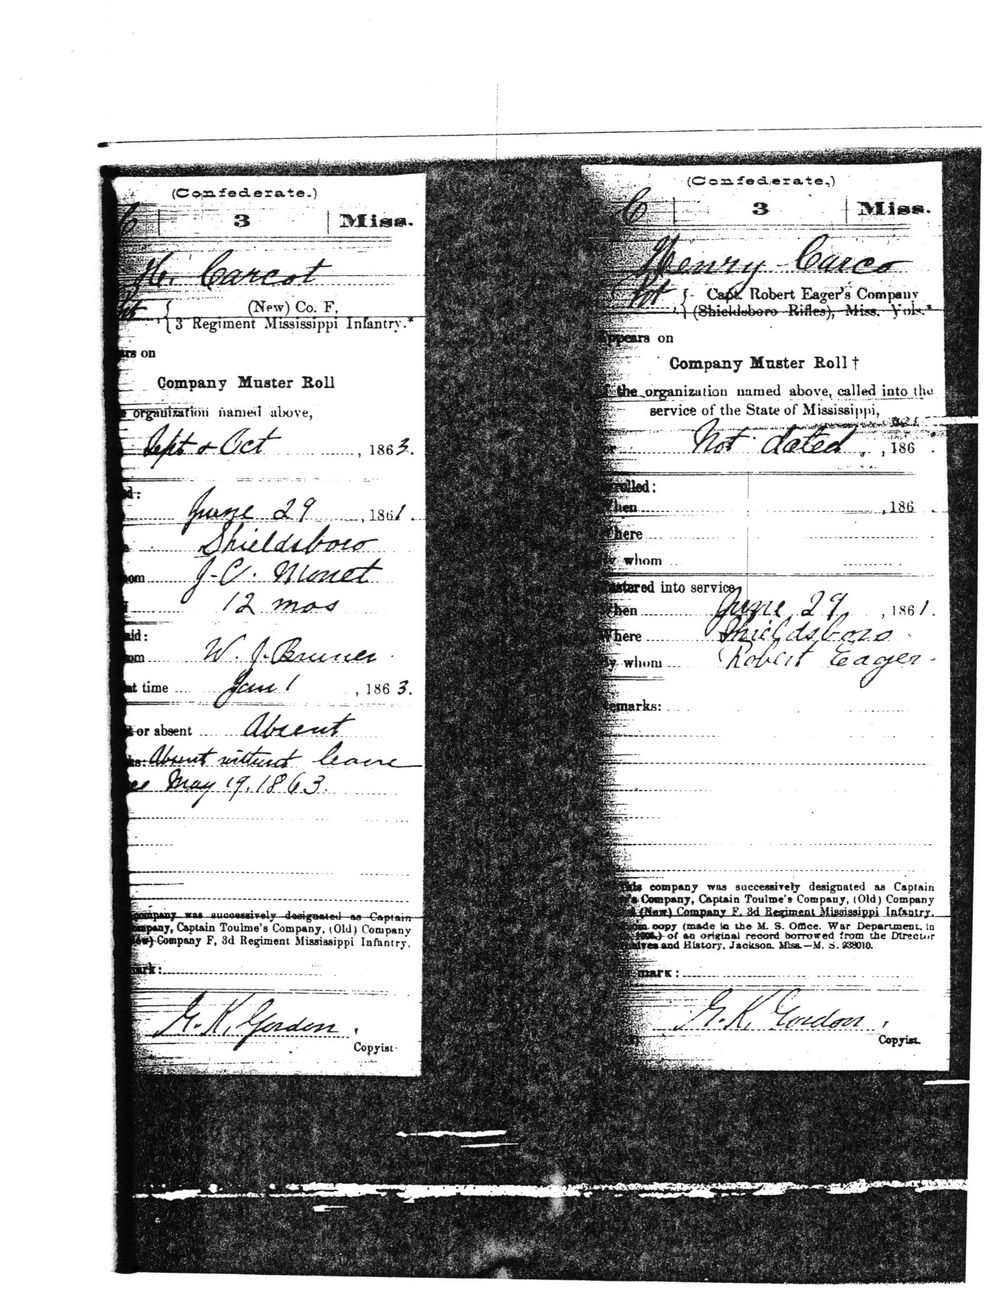 (Confederate.)
C 3 Miss.
H. Carcot
(New) Co. F,
3 Regiment Mississippi Infantry.*
on
Company Muster Roll
organization named above,
Sept & Oct, 1863.
June 29, 1861.
Shieldsboro
J. C. Monet
12 mos
W. J. Bruner
time Jan 1, 1863.
or absent Absent
Absent without leave
May 19. 1863.
company was successively designated as Captain
Company, Captain Toulme's Company, (Old) Company
Company F, 3d Regiment Mississippi Infantry.
G. K. Gordon.
Copyist.
(Confederate.)
C 3 Miss.
Henry Carco
Pvt Capt. Robert Eager's Company
(Shieldsboro Rifles), Miss. Vols.*
Appears on
Company Muster Roll †
of the organization named above, called into the
service of the State of Mississippi,
Not dated, 186 .
When , 186 .
Where
By whom
Mustered into service:
When June 29, 1861.
Where Shieldsboro.
By whom Robert Eager.
Remarks:
This company was successively designated as Captain
Company, Captain Toulme's Company, (Old) Company
(New) Company F, 3d Regiment Mississippi Infantry.
copy (made in the M. S. Office, War Department, in
of an original record borrowed from the Director
and History, Jackson, Miss.—M. S. 938010.
mark:
G. K. Gordon.
Copyist.